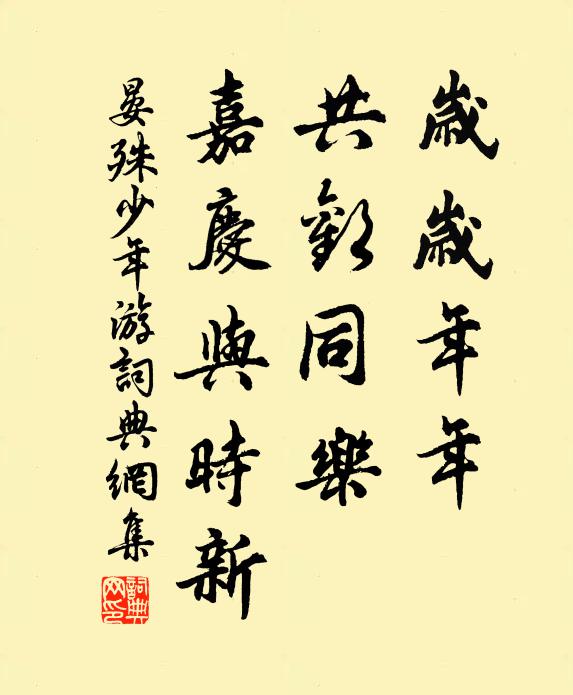 歲歲年年
共歡同樂
嘉慶與時新
晏殊少年游詞典網集
詞典网印